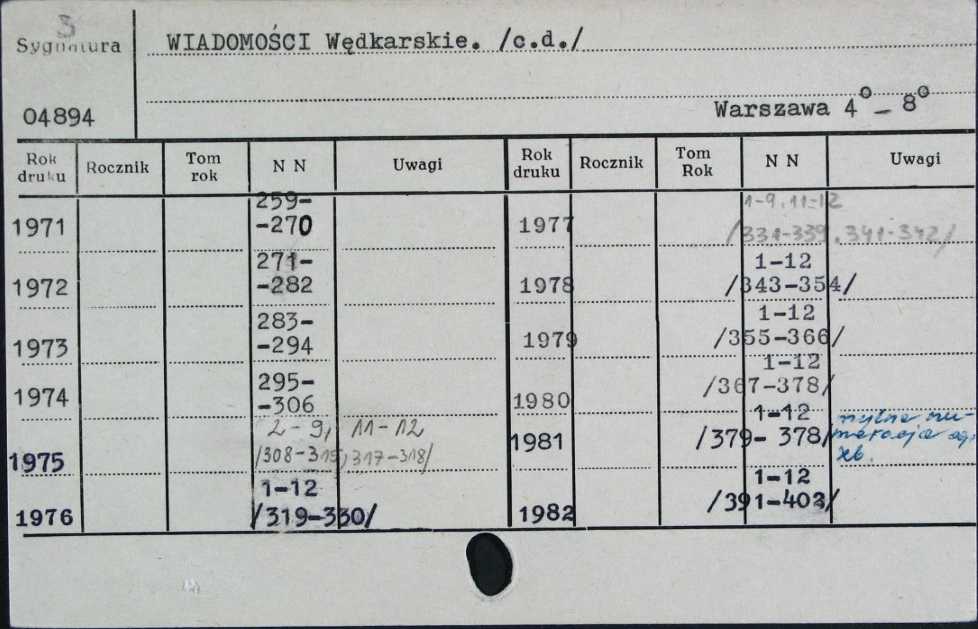 3
Sygnatura
WIADOMOŚCI Wędkarskie. /c.d./
04894
Warszawa 4° - 8°
Rok druku Rocznik Tom rok N N Uwagi Rok druku Rocznik Tom Rok N N Uwagi
1971 259-
-270
1972 271-
-282
1973 283-
-294
1974 295-
-306
1975 2-9, 11-12
/308-315, 317-318/
1976 1-12
/319-330/
1977 1-9, 11-12
/331-339, 341-342/
1978 1-12
/343-354/
1979 1-12
/355-366/
1980 1-12
/367-378/
1981 1-12
/379- 378/
mylna nu-
meracja
1982 1-12
/391-402/